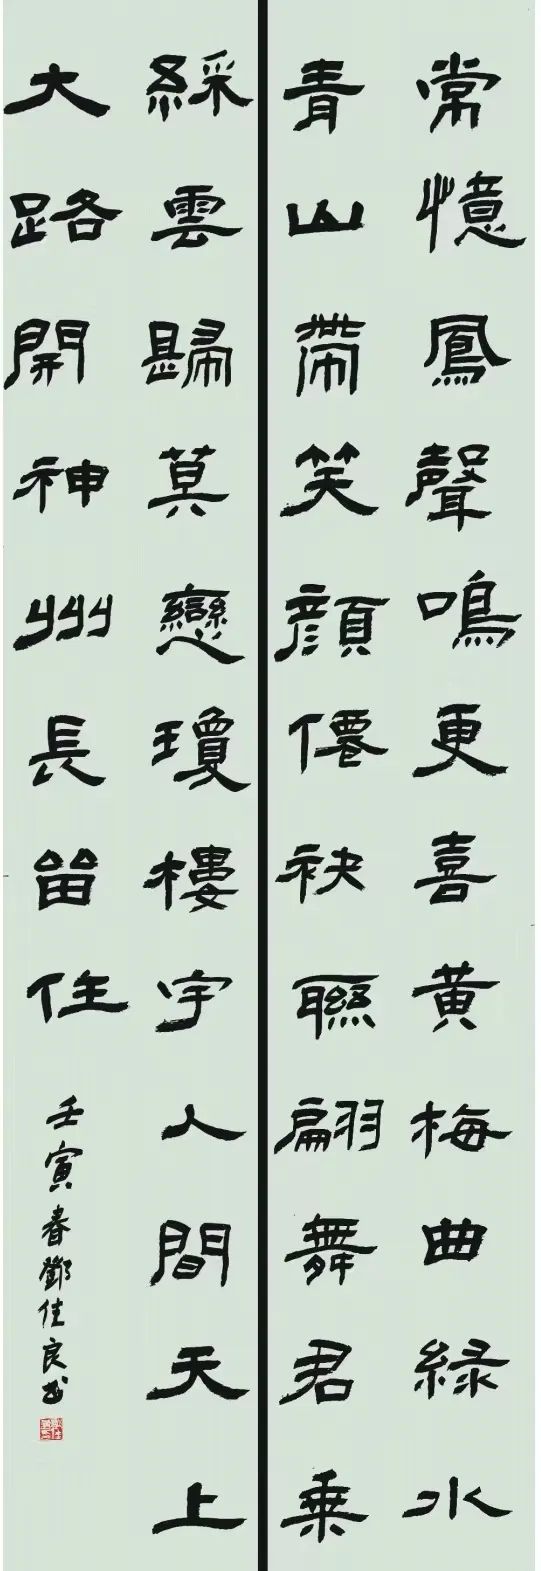 常憶鳳聲鳴更喜黄梅曲緑水
青山帶笑顔僊袂聮翩舞君乗
綵雲歸莫戀瓊樓宇人間天上
大路開神州長留住
壬寅春鄧佳良书